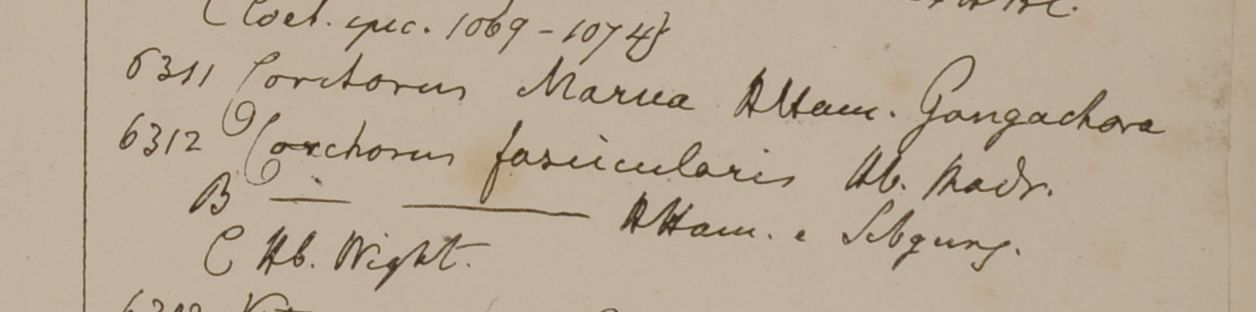 (Coel. spec. 1069-1074}
6311 Corchorus Marua HHam. Gongachora
6312 Corchorus fascicularis Hb. Madr.
B — — HHam. e
C Hb. Wight.